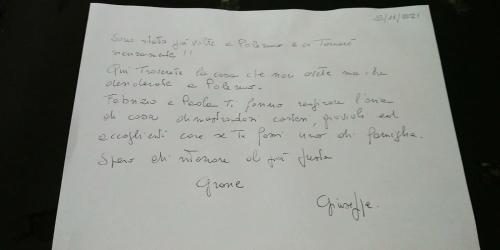 3/11/2021
Sono stato più volte a Palermo e ci Tornerò
sicuramente !!
Qui Troverete la casa che non avete ma che
desiderate a Palermo.
Fabrizio e Paola Ti fanno respirare l'aria
di casa dimostrandosi cortesi, gioviali ed
accoglienti come se Tu fossi uno di famiglia.
Spero di ritornare al più presto
Grazie
Giuseppe.